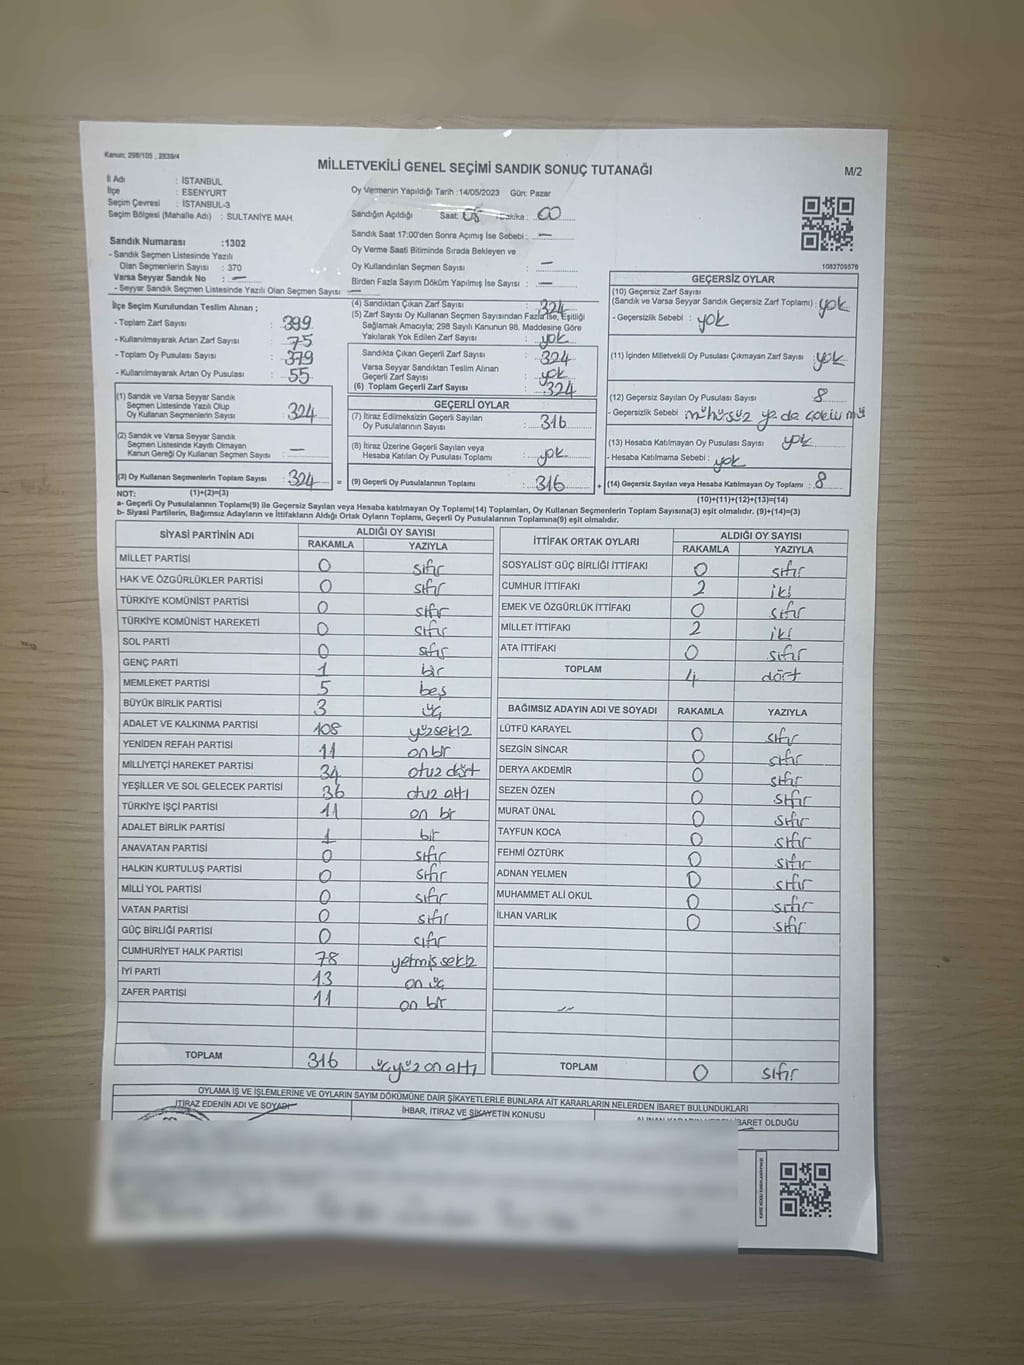 Kanun; 298/105 , 2839/4
MİLLETVEKİLİ GENEL SEÇİMİ SANDIK SONUÇ TUTANAĞI
M/2
İl Adı : İSTANBUL
İlçe : ESENYURT
Seçim Çevresi : İSTANBUL-3
Seçim Bölgesi (Mahalle Adı) : SULTANİYE MAH.
Sandık Numarası :1302
- Sandık Seçmen Listesinde Yazılı
Olan Seçmenlerin Sayısı : 370
Varsa Seyyar Sandık No : —
- Seyyar Sandık Seçmen Listesinde Yazılı Olan Seçmen Sayısı: —
Oy Vermenin Yapıldığı Tarih :14/05/2023 Gün: Pazar
Sandığın Açıldığı Saat: Dakika : 00
Sandık Saat 17:00'den Sonra Açımış İse Sebebi : —
Oy Verme Saati Bitiminde Sırada Bekleyen ve
Oy Kullandırılan Seçmen Sayısı : —
Birden Fazla Sayım Döküm Yapılmış İse Sayısı : —
1083709576
İlçe Seçim Kurulundan Teslim Alınan ;
- Toplam Zarf Sayısı : 399
- Kullanılmayarak Artan Zarf Sayısı : 75
- Toplam Oy Pusulası Sayısı : 379
- Kullanılmayarak Artan Oy Pusulası : 55
(1) Sandık ve Varsa Seyyar Sandık
Seçmen Listesinde Yazılı Olup
Oy Kullanan Seçmenlerin Sayısı : 324
(2) Sandık ve Varsa Seyyar Sandık
Seçmen Listesinde Kayıtlı Olmayan
Kanun Gereği Oy Kullanan Seçmen Sayısı : —
(3) Oy Kullanan Seçmenlerin Toplam Sayısı : 324 =
(4) Sandıktan Çıkan Zarf Sayısı : 324
(5) Zarf Sayısı Oy Kullanan Seçmen Sayısından Fazla İse, Eşitliği
Sağlamak Amacıyla; 298 Sayılı Kanunun 98. Maddesine Göre
Yakılarak Yok Edilen Zarf Sayısı : yok
Sandıkta Çıkan Geçerli Zarf Sayısı : 324
Varsa Seyyar Sandıktan Teslim Alınan
Geçerli Zarf Sayısı : yok
(6) Toplam Geçerli Zarf Sayısı : 324
GEÇERLİ OYLAR
(7) İtiraz Edilmeksizin Geçerli Sayılan
Oy Pusulalarının Sayısı : 316
(8) İtiraz Üzerine Geçerli Sayılan veya
Hesaba Katılan Oy Pusulası Toplamı : yok
(9) Geçerli Oy Pusulalarının Toplamı : 316 +
GEÇERSİZ OYLAR
(10) Geçersiz Zarf Sayısı
(Sandık ve Varsa Seyyar Sandık Geçersiz Zarf Toplamı) : yok
- Geçersizlik Sebebi : yok
(11) İçinden Milletvekili Oy Pusulası Çıkmayan Zarf Sayısı : yok
(12) Geçersiz Sayılan Oy Pusulası Sayısı : 8
- Geçersizlik Sebebi : mühürsüz ya da
(13) Hesaba Katılmayan Oy Pusulası Sayısı : yok
- Hesaba Katılmama Sebebi : yok
(14) Geçersiz Sayılan veya Hesaba Katılmayan Oy Toplamı : 8
NOT: (1)+(2)=(3)
(10)+(11)+(12)+(13)=(14)
a- Geçerli Oy Pusulalarının Toplamı(9) ile Geçersiz Sayılan veya Hesap katılmayan Oy Toplamı(14) Toplamları, Oy Kullanan Seçmenlerin Toplam Sayısına(3) eşit olmalıdır. (9)+(14)=(3)
b- Siyasi Partilerin, Bağımsız Adayların ve İttifakların Aldığı Ortak Oyların Toplamı, Geçerli Oy Pusulalarının Toplamına(9) eşit olmalıdır.
SİYASİ PARTİNİN ADI ALDIĞI OY SAYISI
RAKAMLA YAZIYLA
MİLLET PARTİSİ 0 sıfır
HAK VE ÖZGÜRLÜKLER PARTİSİ 0 sıfır
TÜRKİYE KOMÜNİST PARTİSİ 0 sıfır
TÜRKİYE KOMÜNİST HAREKETİ 0 sıfır
SOL PARTİ 0 sıfır
GENÇ PARTİ 1 bir
MEMLEKET PARTİSİ 5 beş
BÜYÜK BİRLİK PARTİSİ 3 üç
ADALET VE KALKINMA PARTİSİ 108 yüzsekiz
YENİDEN REFAH PARTİSİ 11 on bir
MİLLİYETÇİ HAREKET PARTİSİ 34 otuz dört
YEŞİLLER VE SOL GELECEK PARTİSİ 36 otuz altı
TÜRKİYE İŞÇİ PARTİSİ 11 on bir
ADALET BİRLİK PARTİSİ 1 bir
ANAVATAN PARTİSİ 0 sıfır
HALKIN KURTULUŞ PARTİSİ 0 sıfır
MİLLİ YOL PARTİSİ 0 sıfır
VATAN PARTİSİ 0 sıfır
GÜÇ BİRLİĞİ PARTİSİ 0 sıfır
CUMHURİYET HALK PARTİSİ 78 yetmiş sekiz
İYİ PARTİ 13 on üç
ZAFER PARTİSİ 11 on bir
TOPLAM 316 üçyüz on altı
İTTİFAK ORTAK OYLARI ALDIĞI OY SAYISI
RAKAMLA YAZIYLA
SOSYALİST GÜÇ BİRLİĞİ İTTİFAKI 0 sıfır
CUMHUR İTTİFAKI 2 iki
EMEK VE ÖZGÜRLÜK İTTİFAKI 0 sıfır
MİLLET İTTİFAKI 2 iki
ATA İTTİFAKI 0 sıfır
TOPLAM 4 dört
BAĞIMSIZ ADAYIN ADI VE SOYADI RAKAMLA YAZIYLA
LÜTFÜ KARAYEL 0 sıfır
SEZGİN SİNCAR 0 sıfır
DERYA AKDEMİR 0 sıfır
SEZEN ÖZEN 0 sıfır
MURAT ÜNAL 0 sıfır
TAYFUN KOCA 0 sıfır
FEHMİ ÖZTÜRK 0 sıfır
ADNAN YELMEN 0 sıfır
MUHAMMET ALİ OKUL 0 sıfır
İLHAN VARLIK 0 sıfır
TOPLAM 0 sıfır
OYLAMA İŞ VE İŞLEMLERİNE VE OYLARIN SAYIM DÖKÜMÜNE DAİR ŞİKAYETLERLE BUNLARA AİT KARARLARIN NELERDEN İBARET BULUNDUKLARI
İTİRAZ EDENİN ADI VE SOYADI İHBAR, İTİRAZ VE ŞİKAYETİN KONUSU İBARET OLDUĞU